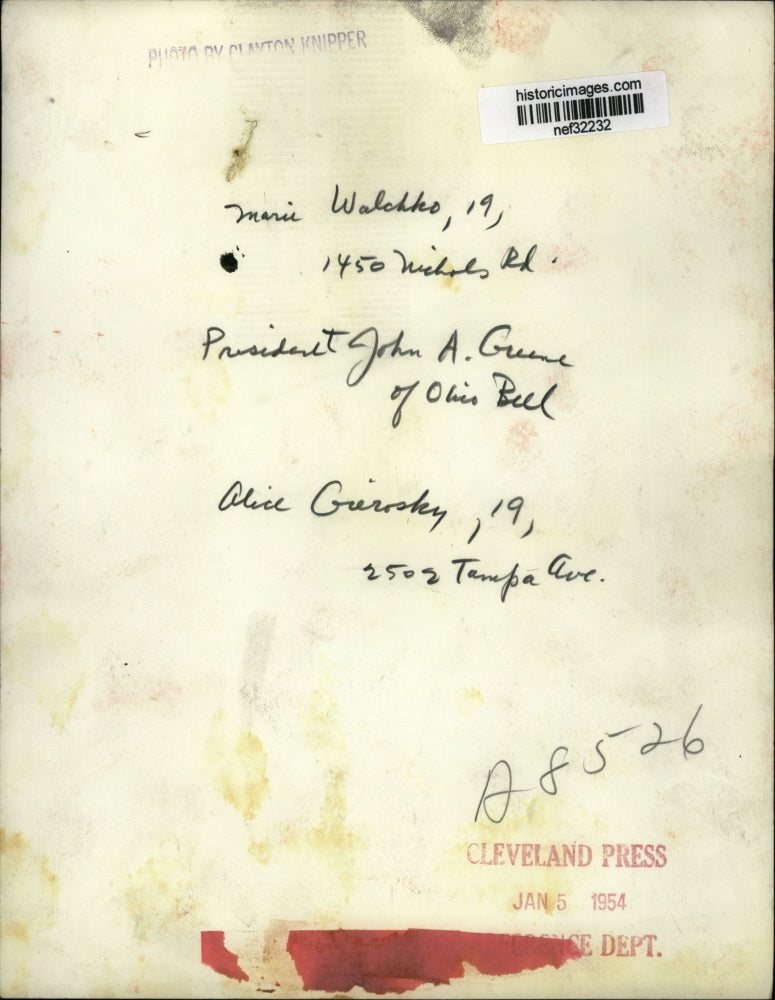 PHOTO BY CLAYTON KNIPPER
historicimages.com
nef32232
Marie Walchko, 19,
1450 Nichols Rd.
President John A. Greene
of Ohio Bell
Alice Gierosky, 19,
2502 Tampa Ave.
A8526
CLEVELAND PRESS
JAN 5 1954
DEPT.